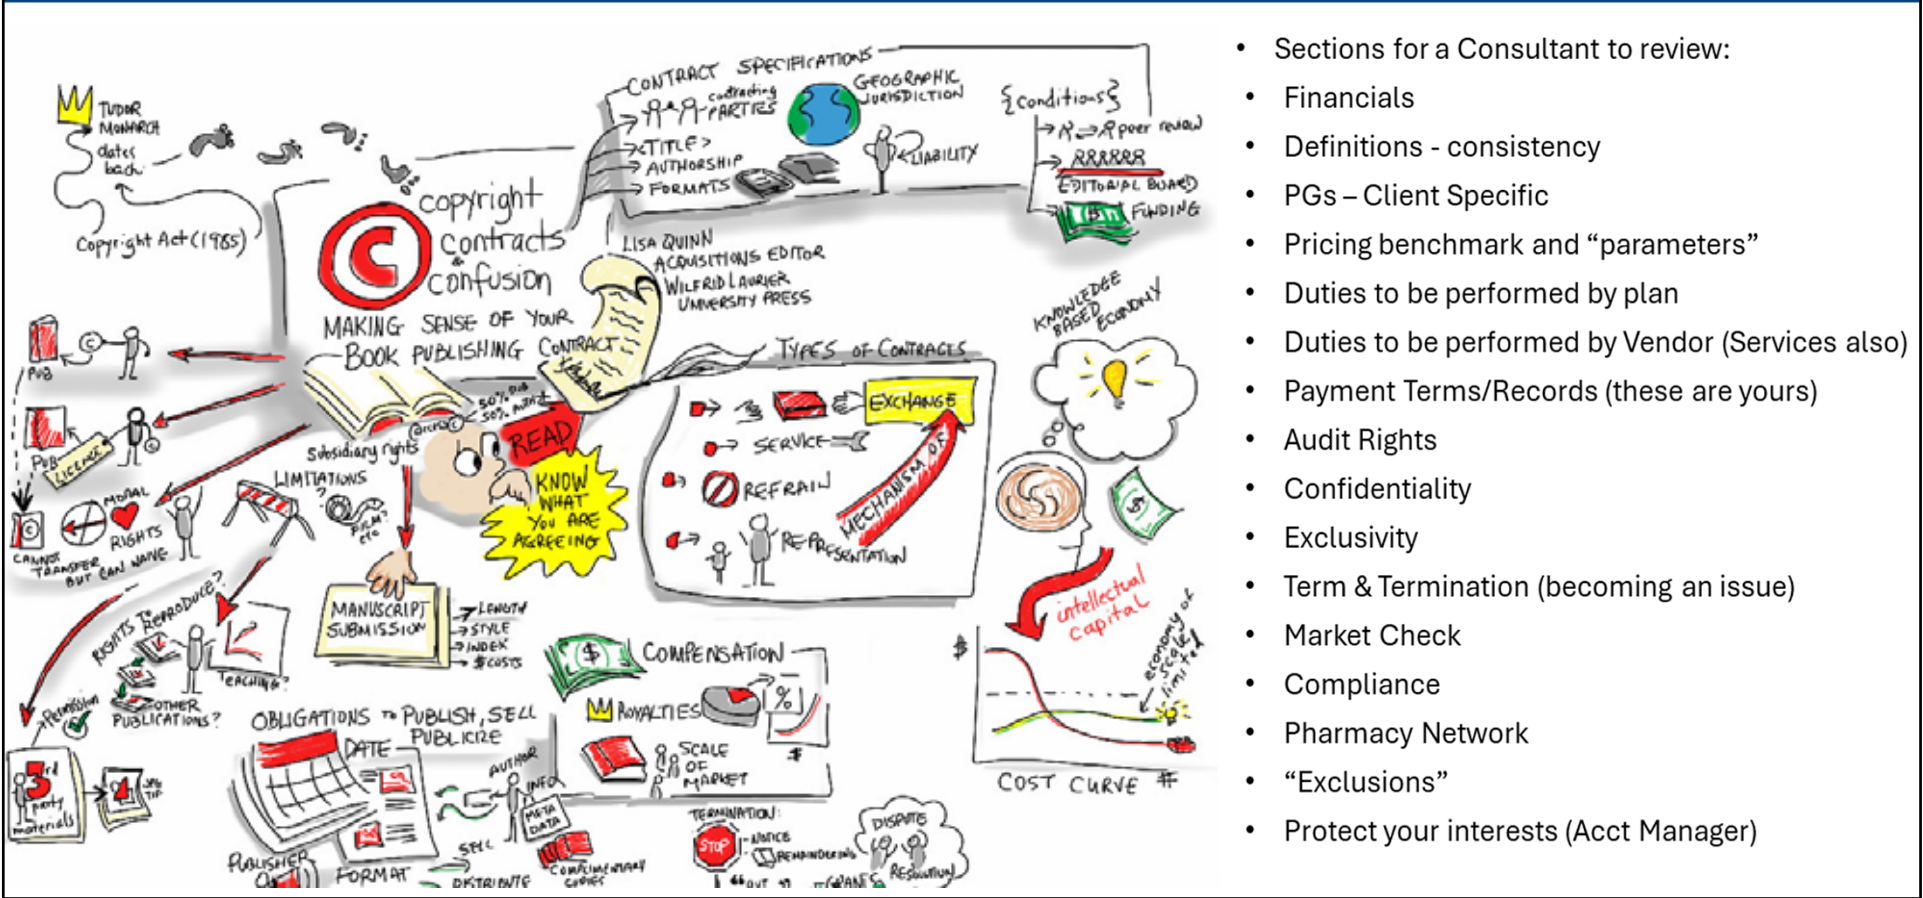 TUDOR
MONARCH
dates
back
Copyright Act (1985)
copyright
contracts
&
confusion
MAKING SENSE OF YOUR
BOOK PUBLISHING CONTRACT
LISA QUINN
ACQUISITIONS EDITOR
WILFRID LAURIER
UNIVERSITY PRESS
CONTRACT SPECIFICATIONS
contracting
PARTIES
<TITLE>
AUTHORSHIP
FORMATS
GEOGRAPHIC
JURISDICTION
LIABILITY
{conditions}
peer review
EDITORIAL BOARD
FUNDING
PUB
PUB
LICENCE
CANNOT
TRANSFER
BUT CAN WAIVE
MORAL
RIGHTS
Subsidiary rights
50% PUB
50% AUTH
READ
KNOW
WHAT
YOU ARE
AGREEING
LIMITATIONS
?
FILM
etc
TYPES OF CONTRACTS
EXCHANGE
SERVICE
REFRAIN
REPRESENTATION
MECHANISM OF
KNOWLEDGE
BASED ECONOMY
intellectual
capital
$
economy of
scale
limited
COST CURVE #
MANUSCRIPT
SUBMISSION
LENGTH
STYLE
INDEX
$ COSTS
RIGHTS TO REPRODUCE?
TEACHING?
OTHER
PUBLICATIONS?
Permission
3rd
party
materials
JPG
TIF
COMPENSATION
$
ROYALTIES
%
$
SCALE
OF
MARKET
OBLIGATIONS to PUBLISH, SELL
PUBLICIZE
DATE
AUTHOR
INFO
META
DATA
SELL
DISTRIBUTE
COMPLIMENTARY
COPIES
PUBLISHER
FORMAT
TERMINATION:
STOP
NOTICE
REMAINDERING
DISPUTE
RESOLUTION
• Sections for a Consultant to review:
• Financials
• Definitions - consistency
• PGs – Client Specific
• Pricing benchmark and “parameters”
• Duties to be performed by plan
• Duties to be performed by Vendor (Services also)
• Payment Terms/Records (these are yours)
• Audit Rights
• Confidentiality
• Exclusivity
• Term & Termination (becoming an issue)
• Market Check
• Compliance
• Pharmacy Network
• “Exclusions”
• Protect your interests (Acct Manager)